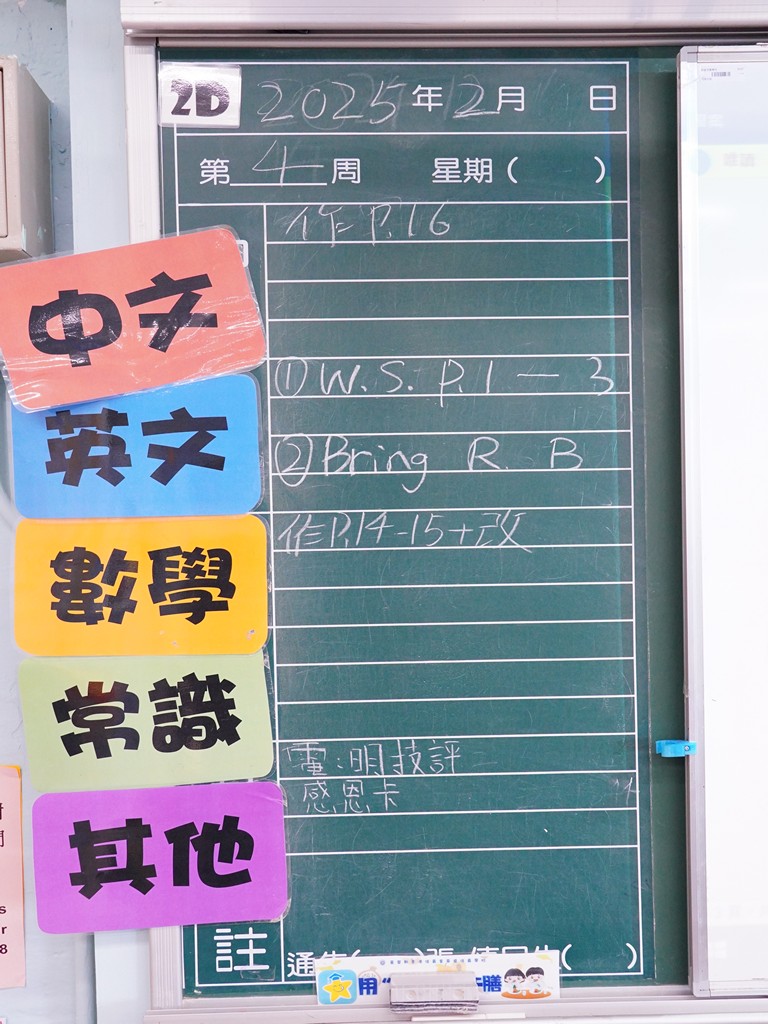 2D 2025年12月 日
第 4 周 星期( )
作 P.16
中文
① W.S. P.1 — 3
英文
② Bring R. B
作P.14-15+改
數學
常識
電:明技評
感恩卡
其他
註
用
膳